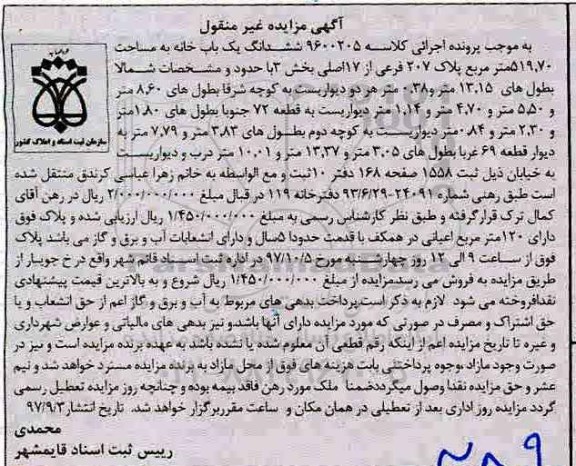 آگهی مزایده غیر منقول
به موجب پرونده اجرائی کلاسه ۹۶۰۰۲۰۵ ششدانگ یک باب خانه به مساحت
۵۱۹,۷۰متر مربع پلاک ۲۰۷ فرعی از ۱۷اصلی بخش ۳با حدود و مشخصات شمالا
بطول های ۱۳,۱۵ متر و۰,۳۸ متر هر دو دیواریست به کوچه شرقا بطول های ۸,۶۰ متر
و ۵,۵۰ متر و ۴,۷۰ متر و ۱,۱۴ متر دیواریست به قطعه ۷۲ جنوبا بطول های ۱,۸۰متر
و ۲,۳۰ متر و ۰,۸۴ متر دیواریست به کوچه دوم بطول های ۳,۸۳ متر و ۷,۷۹ متر به
دیوار قطعه ۶۹ غربا بطول های ۳,۰۵ متر و ۱۳,۳۷ متر و ۱۰,۰۱ متر درب و دیواریست
به خیابان ذیل ثبت ۱۵۵۸ صفحه ۱۶۸ دفتر ۱۰ثبت و مع الواسطه به خانم زهرا عباسی کرندق منتقل شده
است طبق رهنی شماره ۲۴۰۹۱-۹۳/۶/۲۹ دفترخانه ۱۱۹ در قبال مبلغ ۲/۰۰۰/۰۰۰/۰۰۰ ریال در رهن آقای
کمال ترک قرارگرفته و طبق نظر کارشناس رسمی به مبلغ ۱/۴۵۰/۰۰۰/۰۰۰ ریال ارزیابی شده و پلاک فوق
دارای ۱۲۰متر مربع اعیانی در همکف با قدمت حدودا ۵سال و دارای انشعابات آب و برق و گاز می باشد پلاک
فوق از ساعت ۹ الی ۱۲ روز چهارشنبه مورخ ۹۷/۱۰/۵ در اداره ثبت اسناد قائم شهر واقع در خ جویبار از
طریق مزایده به فروش می رسد.مزایده از مبلغ ۱/۴۵۰/۰۰۰/۰۰۰ ریال شروع و به بالاترین قیمت پیشنهادی
نقدافروخته می شود لازم به ذکر است.پرداخت بدهی های مربوط به آب و برق و گاز اعم از حق انشعاب و یا
حق اشتراک و مصرف در صورتی که مورد مزایده دارای آنها باشدو نیز بدهی های مالیاتی و عوارض شهرداری
و غیره تا تاریخ مزایده اعم از اینکه رقم قطعی آن معلوم شده یا نشده باشد به عهده برنده مزایده است و نیز در
صورت وجود مازاد ،وجوه پرداختی بابت هزینه های فوق از محل مازاد به برنده مزایده مسترد خواهد شد و نیم
عشر و حق مزایده نقدا وصول میگرددضمنا ملک مورد رهن فاقد بیمه بوده و چنانچه روز مزایده تعطیل رسمی
گردد مزایده روز اداری بعد از تعطیلی در همان مکان و ساعت مقرربرگزار خواهد شد. تاریخ انتشار۹۷/۹/۳
محمدی
رییس ثبت اسناد قایمشهر
سازمان ثبت اسناد و املاک کشور